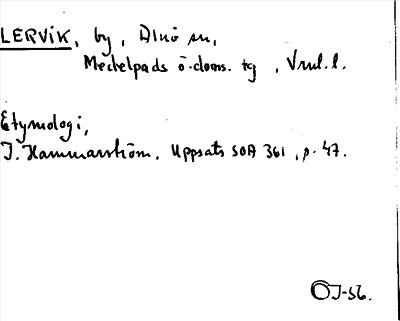 LERVIK, by, Alnö sn,
Medelpads ö. doms. tg, Vnl. l.
Etymologi,
J. Hammarström. Uppsats SOA 361, p. 47.
OJ-56.